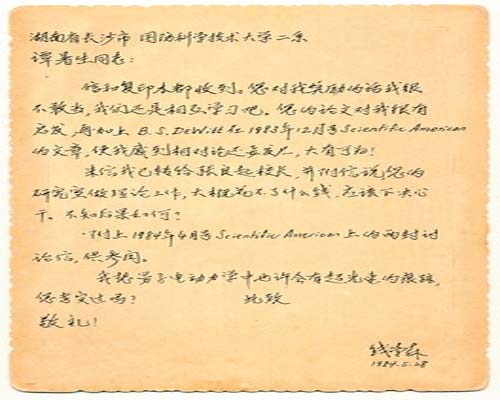 湖南省长沙市 国防科学技术大学二系
谭暑生同志:
信和复印本都收到。您对我奖励的话我很
不敢当,我们还是相互学习吧。您的论文对我很有
启发,再加上 B.S.DeWitt在1983年12月号Scientific American
的文章,使我感到相对论还要发展,大有可为!
来信我已转给张良起校长,并附信说您的
研究室做理论工作,大概花不了什么钱,应该下决心
干。不知后果如何?
附上1984年4月号Scientific American上的两封讨
论信,供参阅。
我想量子电动力学中也许会有超光速的痕迹,
您考虑过吗? 此致
敬礼!
钱学森
1984.5.28